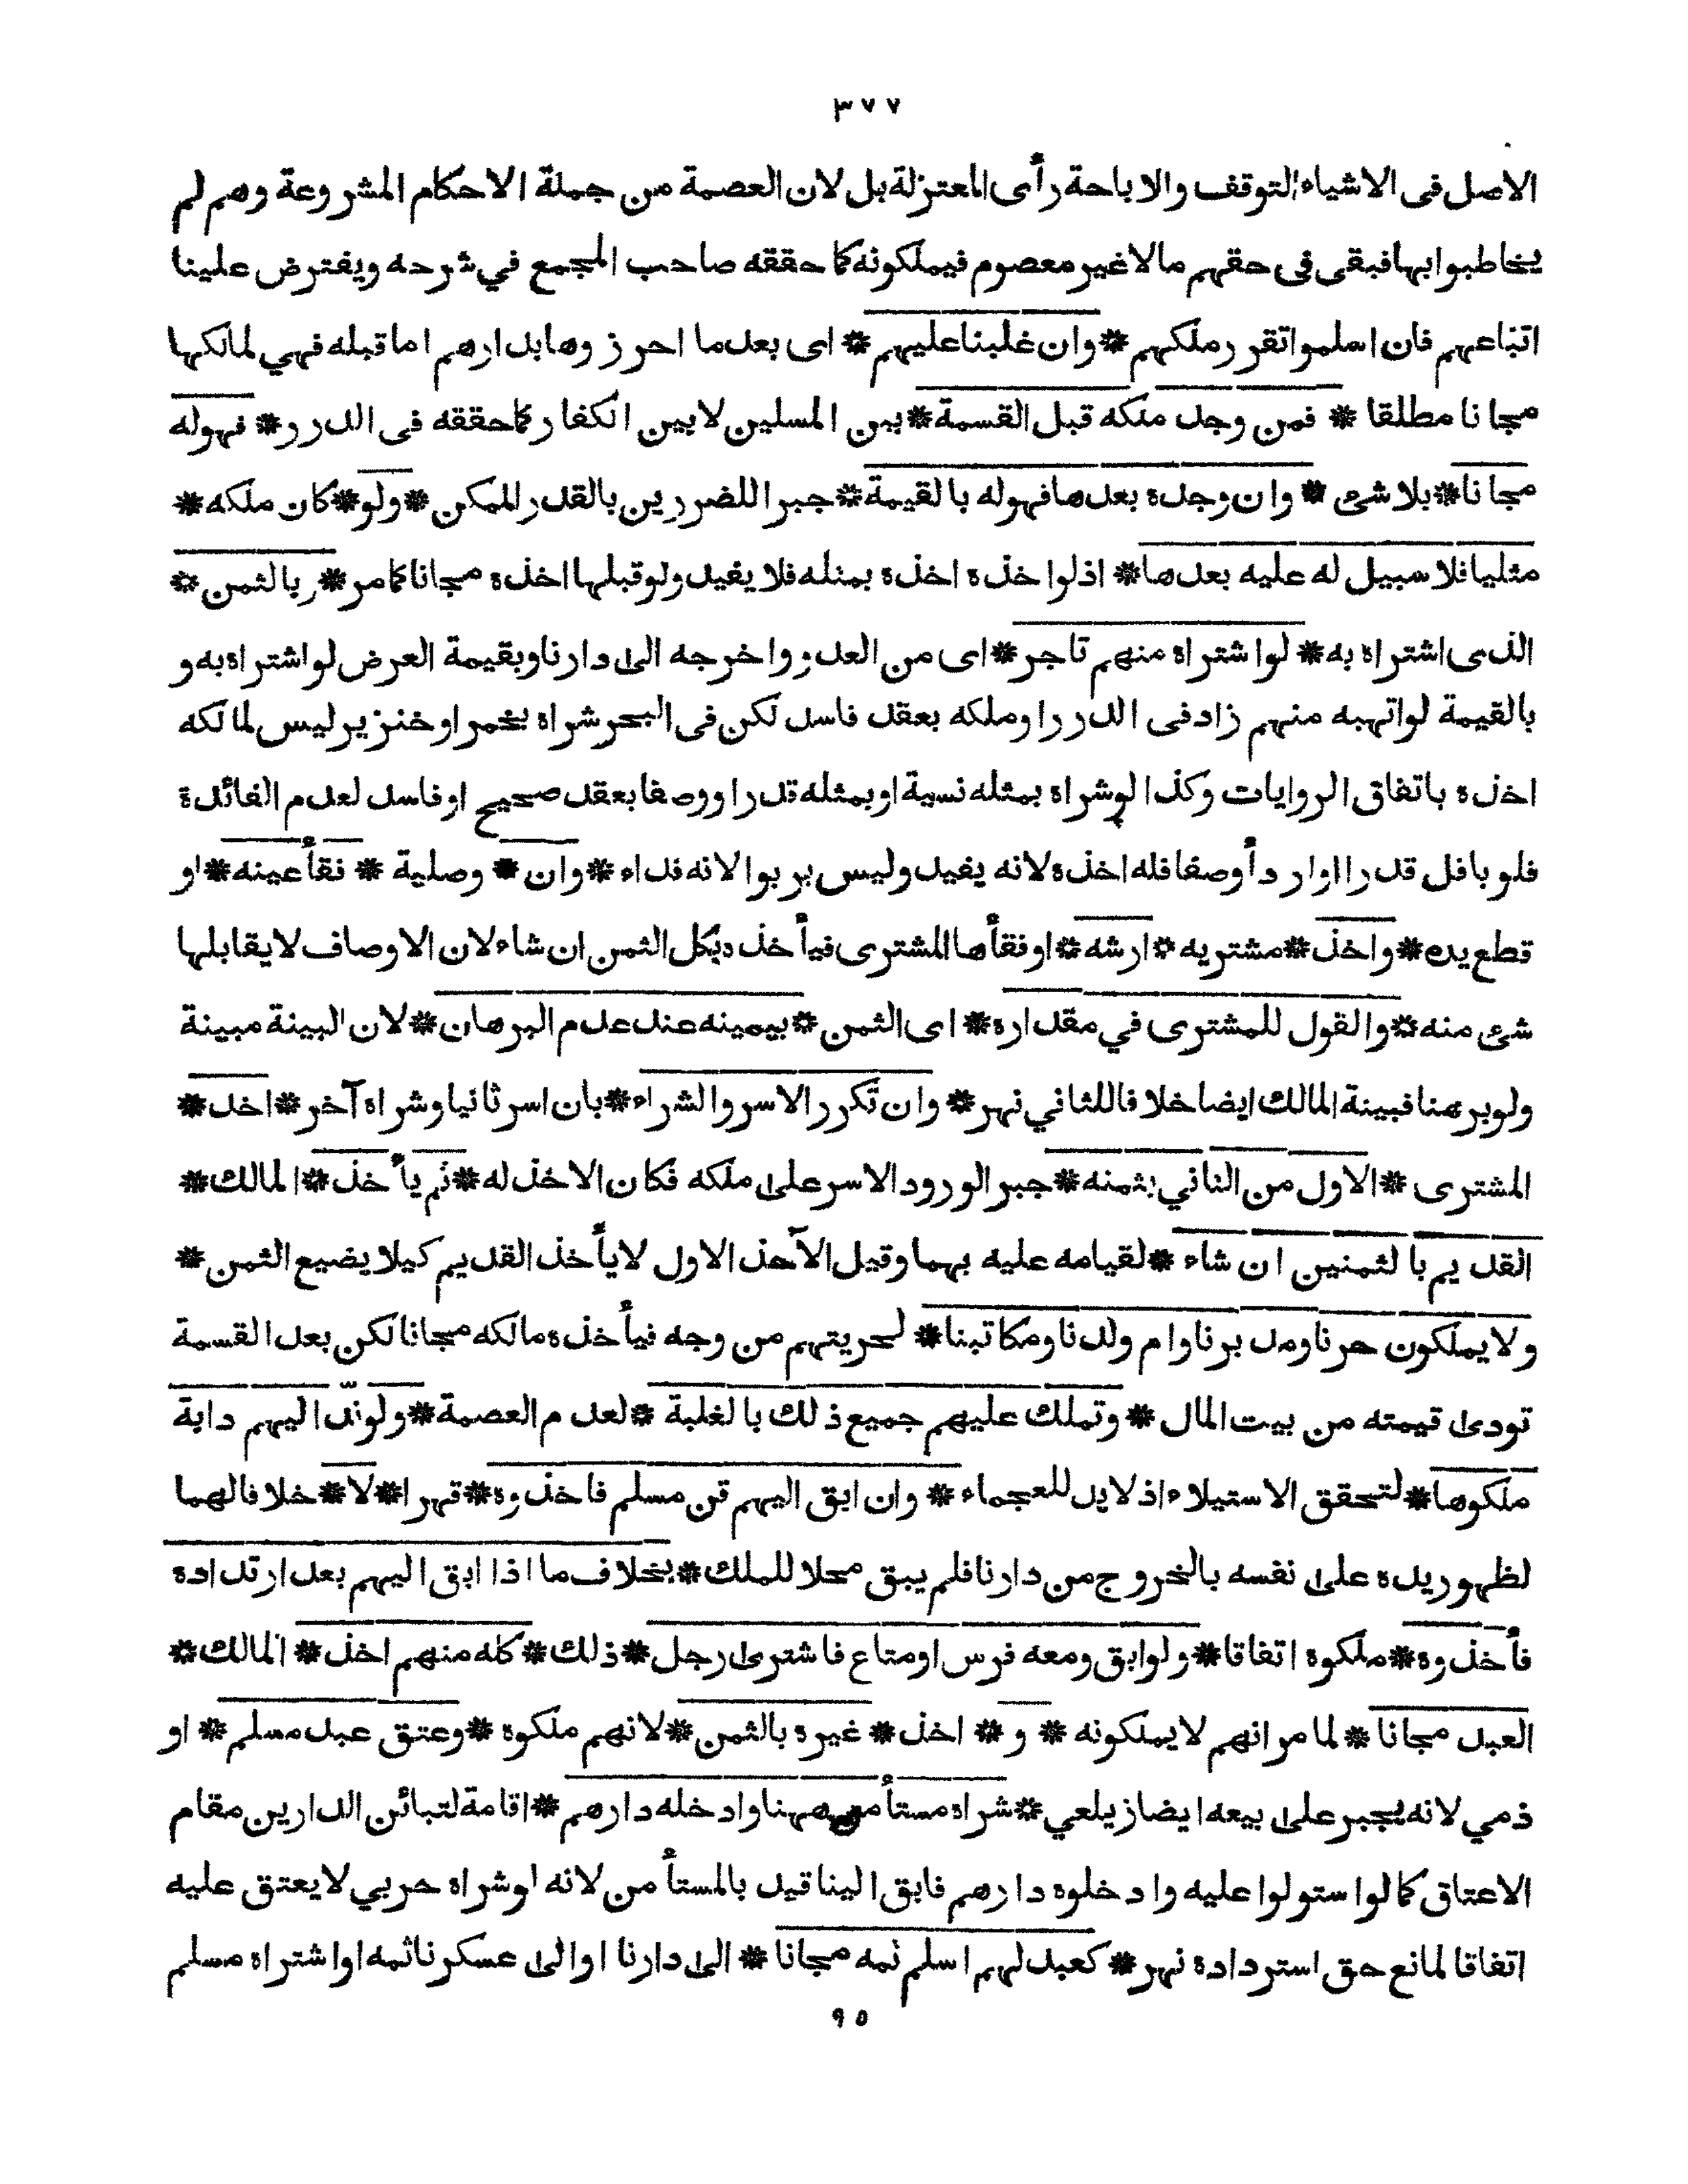 ٣٧٧
الاصل فى الاشياء التوقف والاباحة رأى المعتزلة بل لان العصمة من جملة الاحكام المشروعة وهم لم
يخاطبوا بها فبقى فى حقهم مالا غير معصوم فيملكونه كما حققه صاحب المجمع في شرحه ويفترض علينا
اتباعهم فان اسلموا تقرر ملكهم * وان غلبنا عليهم * اى بعد ما احرزوها بدارهم اما قبله فهي لمالكها
مجانا مطلقا * فمن وجد ملكه قبل القسمة * بين المسلين لا بين الكفار كما حققه فى الدرر * فهو له
مجانا * بلا شئ * وان وجده بعدها فهو له بالقيمة * جبرا للضررين بالقدر الممكن * ولو * كان ملكه *
مثليا فلا سبيل له عليه بعدها * اذ لو اخذه اخذه بمثله فلا يفيد ولو قبلها اخذه مجانا كما مر * وبالثمن *
الذى اشتراه به * لو اشتراه منهم تاجر * اى من العدو واخرجه الى دارنا وبقيمة العرض لو اشتراه به و
بالقيمة لو اتهبه منهم زاد فى الدرر او ملكه بعقد فاسد لكن فى البحر شراه بخمر او خنزير ليس لمالكه
اخذه باتفاق الروايات وكذا لو شراه بمثله نسية او بمثله قدرا ووصفا بعقد صحيح او فاسد لعدم الفائدة
فلو باقل قدرا او اردأ وصفا فله اخذه لانه يفيد وليس بربوا لانه فداء * وان * وصلية * فقأ عينه * او
قطع يده * واخذ * مشتريه * ارشه * او فقأها المشترى فيأخذه بكل الثمن ان شاء لان الاوصاف لا يقابلها
شئ منه * والقول للمشترى في مقداره * اى الثمن * بيمينه عند عدم البرهان * لان البينة مبينة
ولو برهنا فبينة المالك ايضا خلافا للثاني نهر * وان تكرر الاسر والشراء * بان اسر ثانيا وشراه آخر * اخذ *
المشترى * الاول من الثاني بثمنه * جبرا لورود الاسر على ملكه فكان الاخذ له * ثم يأخذ * المالك *
القديم بالثمنين ان شاء * لقيامه عليه بهما وقبل الآخذ الاول لا يأخذ القديم كيلا يضيع الثمن *
ولا يملكون حرنا ومدبرنا وام ولدنا ومكاتبنا * لحريتهم من وجه فيأخذه مالكه مجانا لكن بعد القسمة
تودى قيمته من بيت المال * وتملك عليهم جميع ذلك بالغلبة * لعدم العصمة * ولو ندّ اليهم دابة
ملكوها * لتحقق الاستيلاء اذ لا يد للعجماء * وان ابق اليهم قن مسلم فاخذوه * قهرا * لا * خلافا لهما
لظهور يده على نفسه بالخروج من دارنا فلم يبق محلا للملك * بخلاف ما اذا ابق اليهم بعد ارتداده
فأخذوه * ملكوه اتفاقا * ولو ابق ومعه فرس او متاع فاشترى رجل * ذلك * كله منهم اخذ * المالك *
العبد مجانا * لما مر انهم لا يملكونه * و * اخذ * غيره بالثمن * لانهم ملكوه * وعتق عبد مسلم * او
ذمي لانه يجبر على بيعه ايضا زيلعي * شراه مستأمن ههنا وادخله دارهم * اقامة لتبائن الدارين مقام
الاعتاق كما لو استولوا عليه وادخلوه دارهم فابق الينا قيد بالمستأمن لانه لو شراه حربي لا يعتق عليه
اتفاقا لمانع حق استرداده نهر * كعبد لهم اسلم ثمه مجانا * الى دارنا او الى عسكرنا ثمه او اشتراه مسلم
٩٥